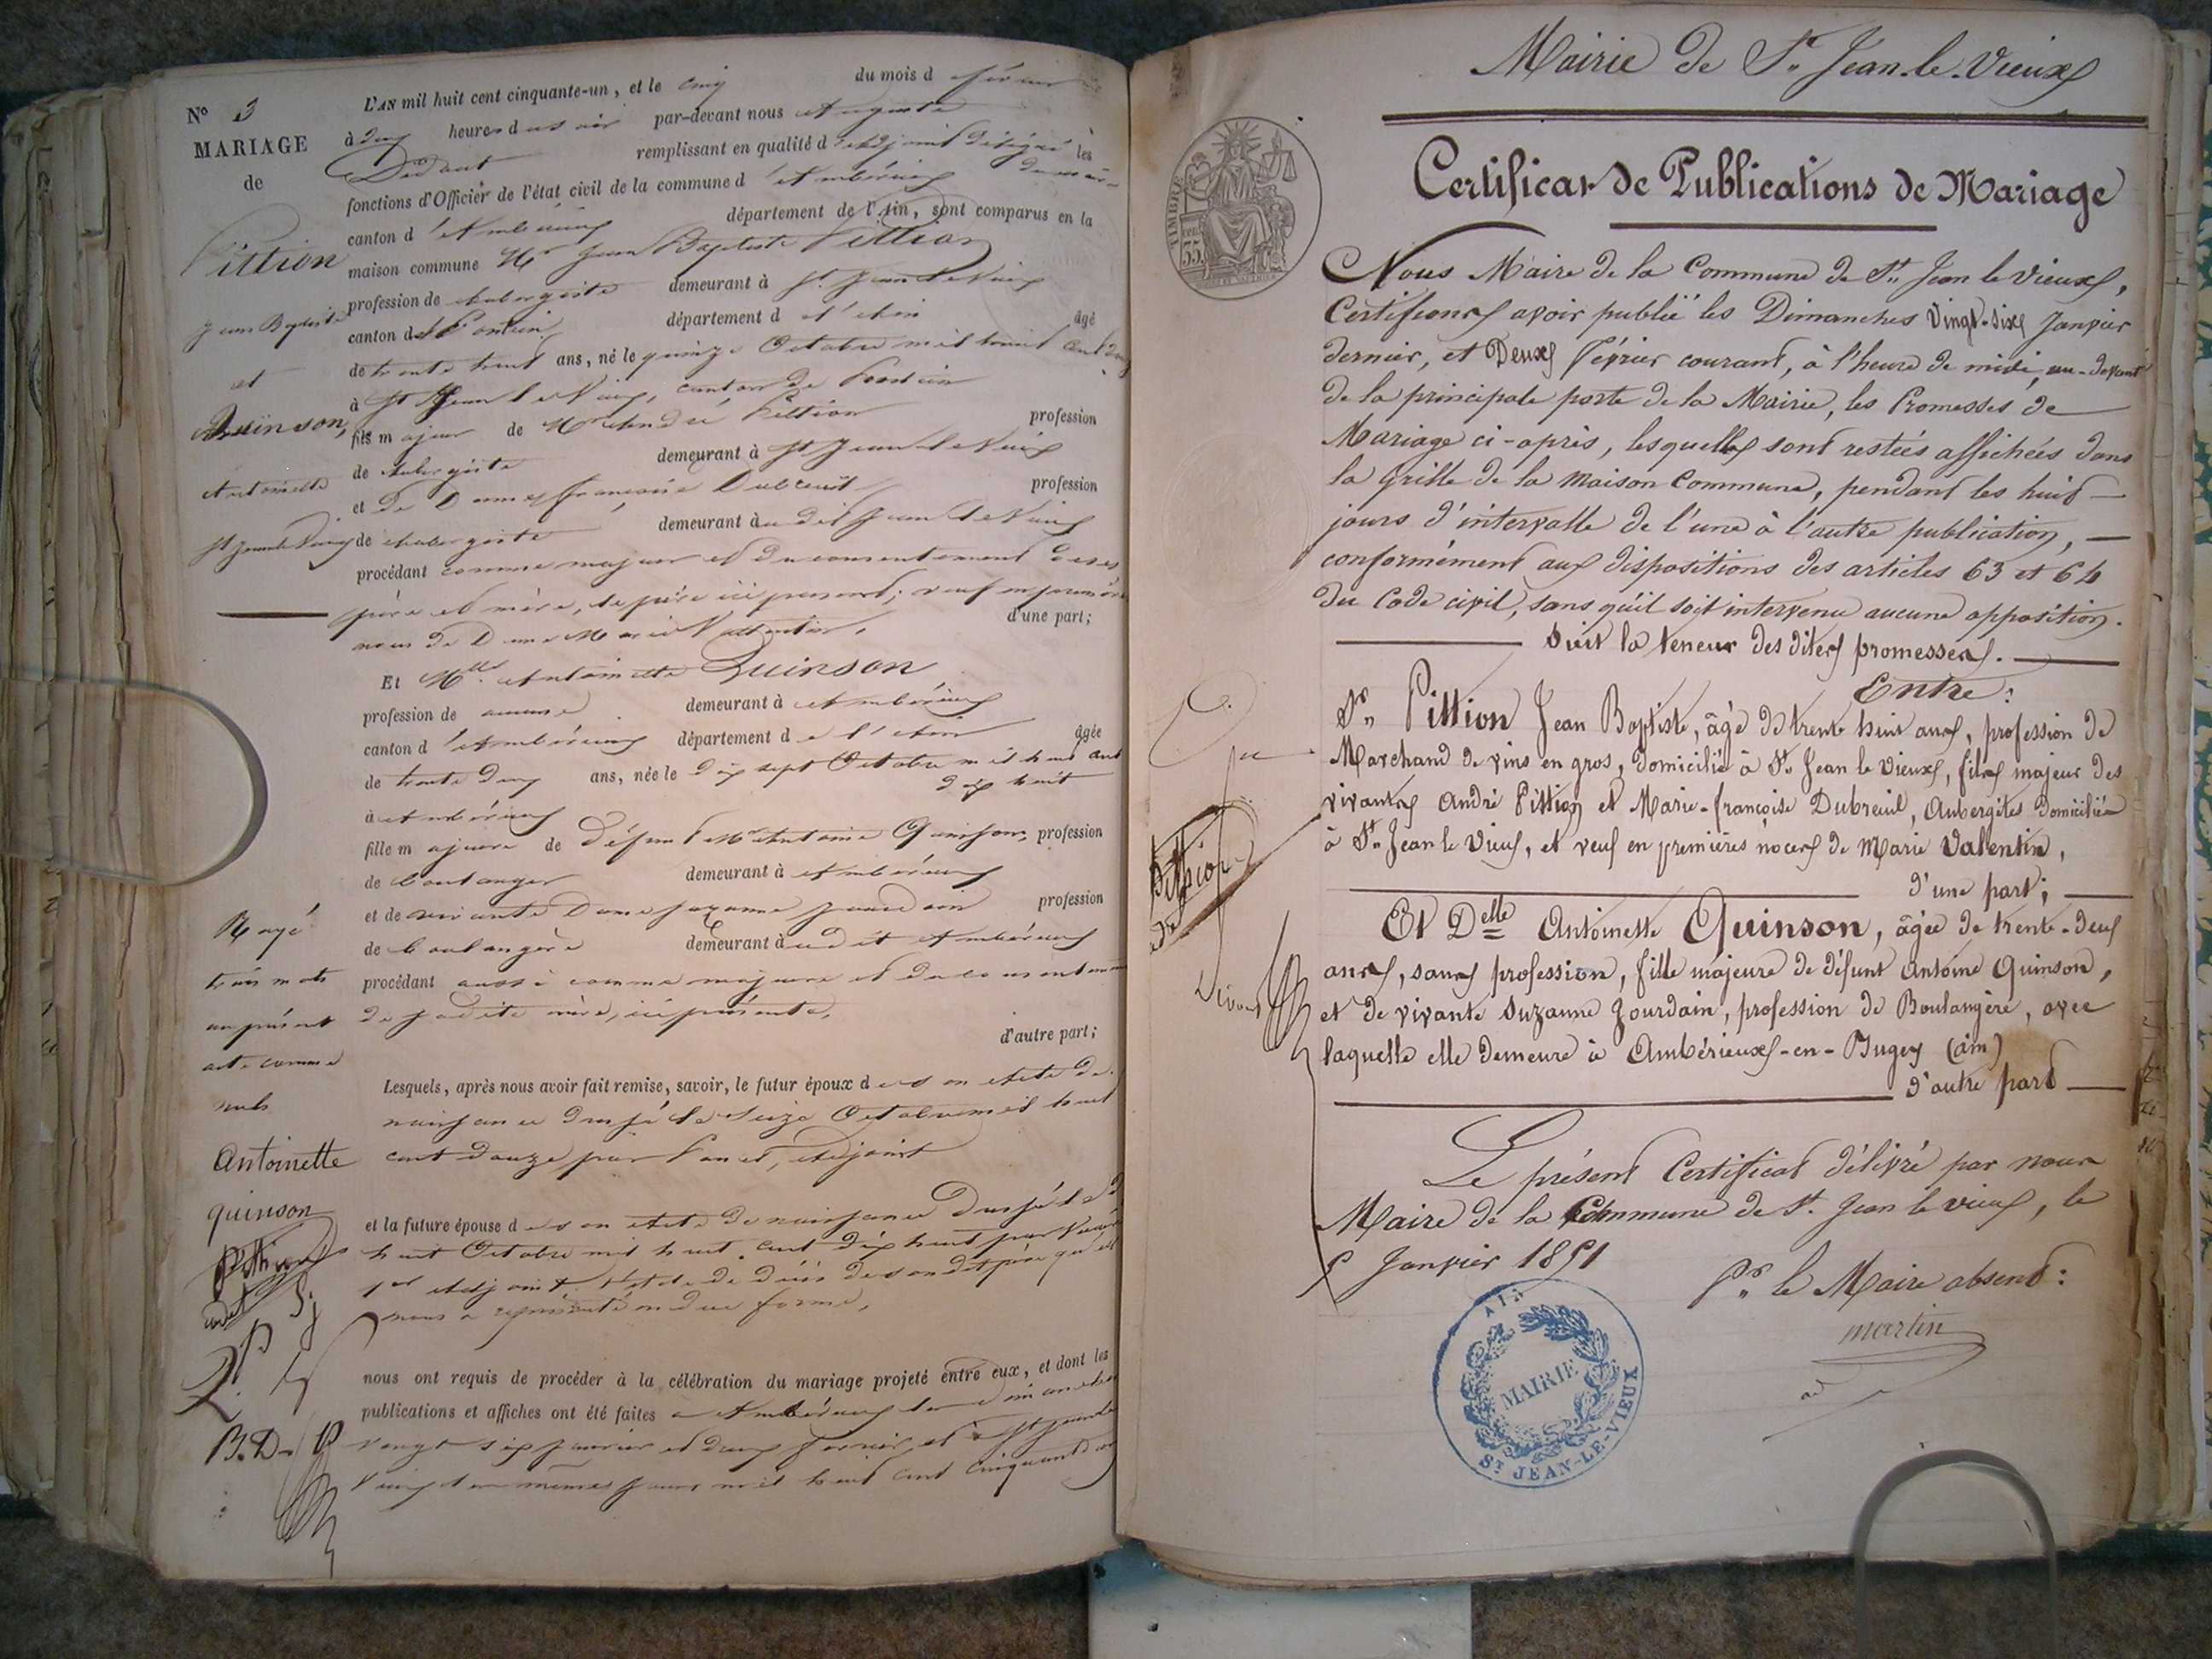 N° 3
MARIAGE
de
Pittion
Jean Baptiste
et
Quinson,
Antoinette
St Jean le Vieux
L'AN mil huit cent cinquante-un, et le cinq du mois d
à heures du soir par-devant nous Auguste
remplissant en qualité d'adjoint désigné les
fonctions d'Officier de l'état civil de la commune d'Ambérieux
canton d'Ambérieux département de l'Ain, sont comparus en la
maison commune Mr Jean Baptiste Pittion
profession de aubergiste demeurant à St Jean le Vieux
canton de Poncin département de l'Ain âgé
de trente huit ans, né le quinze Octobre mil huit cent
à St Jean le Vieux, canton de Poncin
fils majeur de Mr André Pittion profession
de aubergiste demeurant à St Jean le Vieux
et de Dame françoise Dubreuil profession
de aubergiste demeurant audit Jean le Vieux
procédant comme majeur et du consentement de ses
père et mère, le père ici présent; veuf en
de Dame Marie Valentin, d'une part;
Et Melle Antoinette Quinson,
profession de aucune demeurant à Ambérieux
canton d'Ambérieux département de l'Ain âgée
de trente deux ans, née le dix sept Octobre mil huit cent
dix huit
à Ambérieux
fille majeure de Défunt Mr Antoine Quinson, profession
de boulanger demeurant à Ambérieux
et de vivante Dame Suzanne Jourdain profession
de boulangère demeurant audit Ambérieux
procédant aussi comme majeure et du consentement
de sa dite mère, ici présente,
d'autre part;
Lesquels, après nous avoir fait remise, savoir, le futur époux de son Acte de
naissance Dressé le seize Octobre mil huit
cent douze par adjoint
et la future épouse de son Acte de naissance Dressé le
huit Octobre mil huit cent dix huit par
1er Adjoint l'acte de décès de son dit père qu'il
nous a représenté en due forme,
nous ont requis de procéder à la célébration du mariage projeté entre eux, et dont les
publications et affiches ont été faites à Ambérieux les dimanches
vingt six janvier et deux février, et à St Jean le
Vieux les mêmes jours mil huit cent cinquante un
Rayé
trois mots
au présent
acte comme
nuls
Antoinette
quinson
Pittion
B. D.
Mairie de St. Jean-le-Vieux
Certificat de Publications de Mariage
TIMBRE
35
Nous Maire de la Commune de St. Jean le Vieux,
Certifions avoir publié les Dimanches Vingt-Six Janvier
dernier, et Deux Février courant, à l'heure de midi, au-devant
de la principale porte de la Mairie, les Promesses de
Mariage ci-après, lesquelles sont restées affichées dans
la grille de la Maison Commune, pendant les huit
jours d'intervalle de l'une à l'autre publication,
conformément aux dispositions des articles 63 et 64
du Code civil, sans qu'il soit intervenu aucune opposition.
Suit la teneur des dites promesses.
Entre:
Sr. Pittion Jean Baptiste, âgé de trente huit ans, profession de
Marchand de vins en gros, domicilié à St. Jean le Vieux, fils majeur des
vivants André Pittion et Marie-françoise Dubreuil, Aubergites domiciliés
à St. Jean le Vieux, et veuf en premières noces de Marie Valentin,
d'une part;
Et Delle Antoinette Quinson, âgée de trente-deux
ans, sans profession, fille majeure de défunt Antoine Quinson,
et de vivante Suzanne Jourdain, profession de Boulangère, avec
laquelle elle demeure à Ambérieux-en-Bugey (ain)
d'autre part
Le présent Certificat délivré par nous
Maire de la Commune de St. Jean le vieux, le
5 Janvier 1851
Pr. le Maire absent:
martin
ad
AIN
MAIRIE
ST JEAN-LE-VIEUX
Pittion